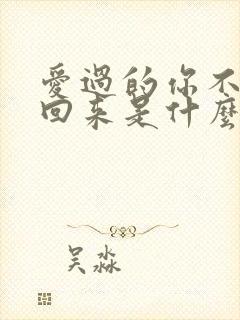 愛過的你不
回來是什麼
吴淼